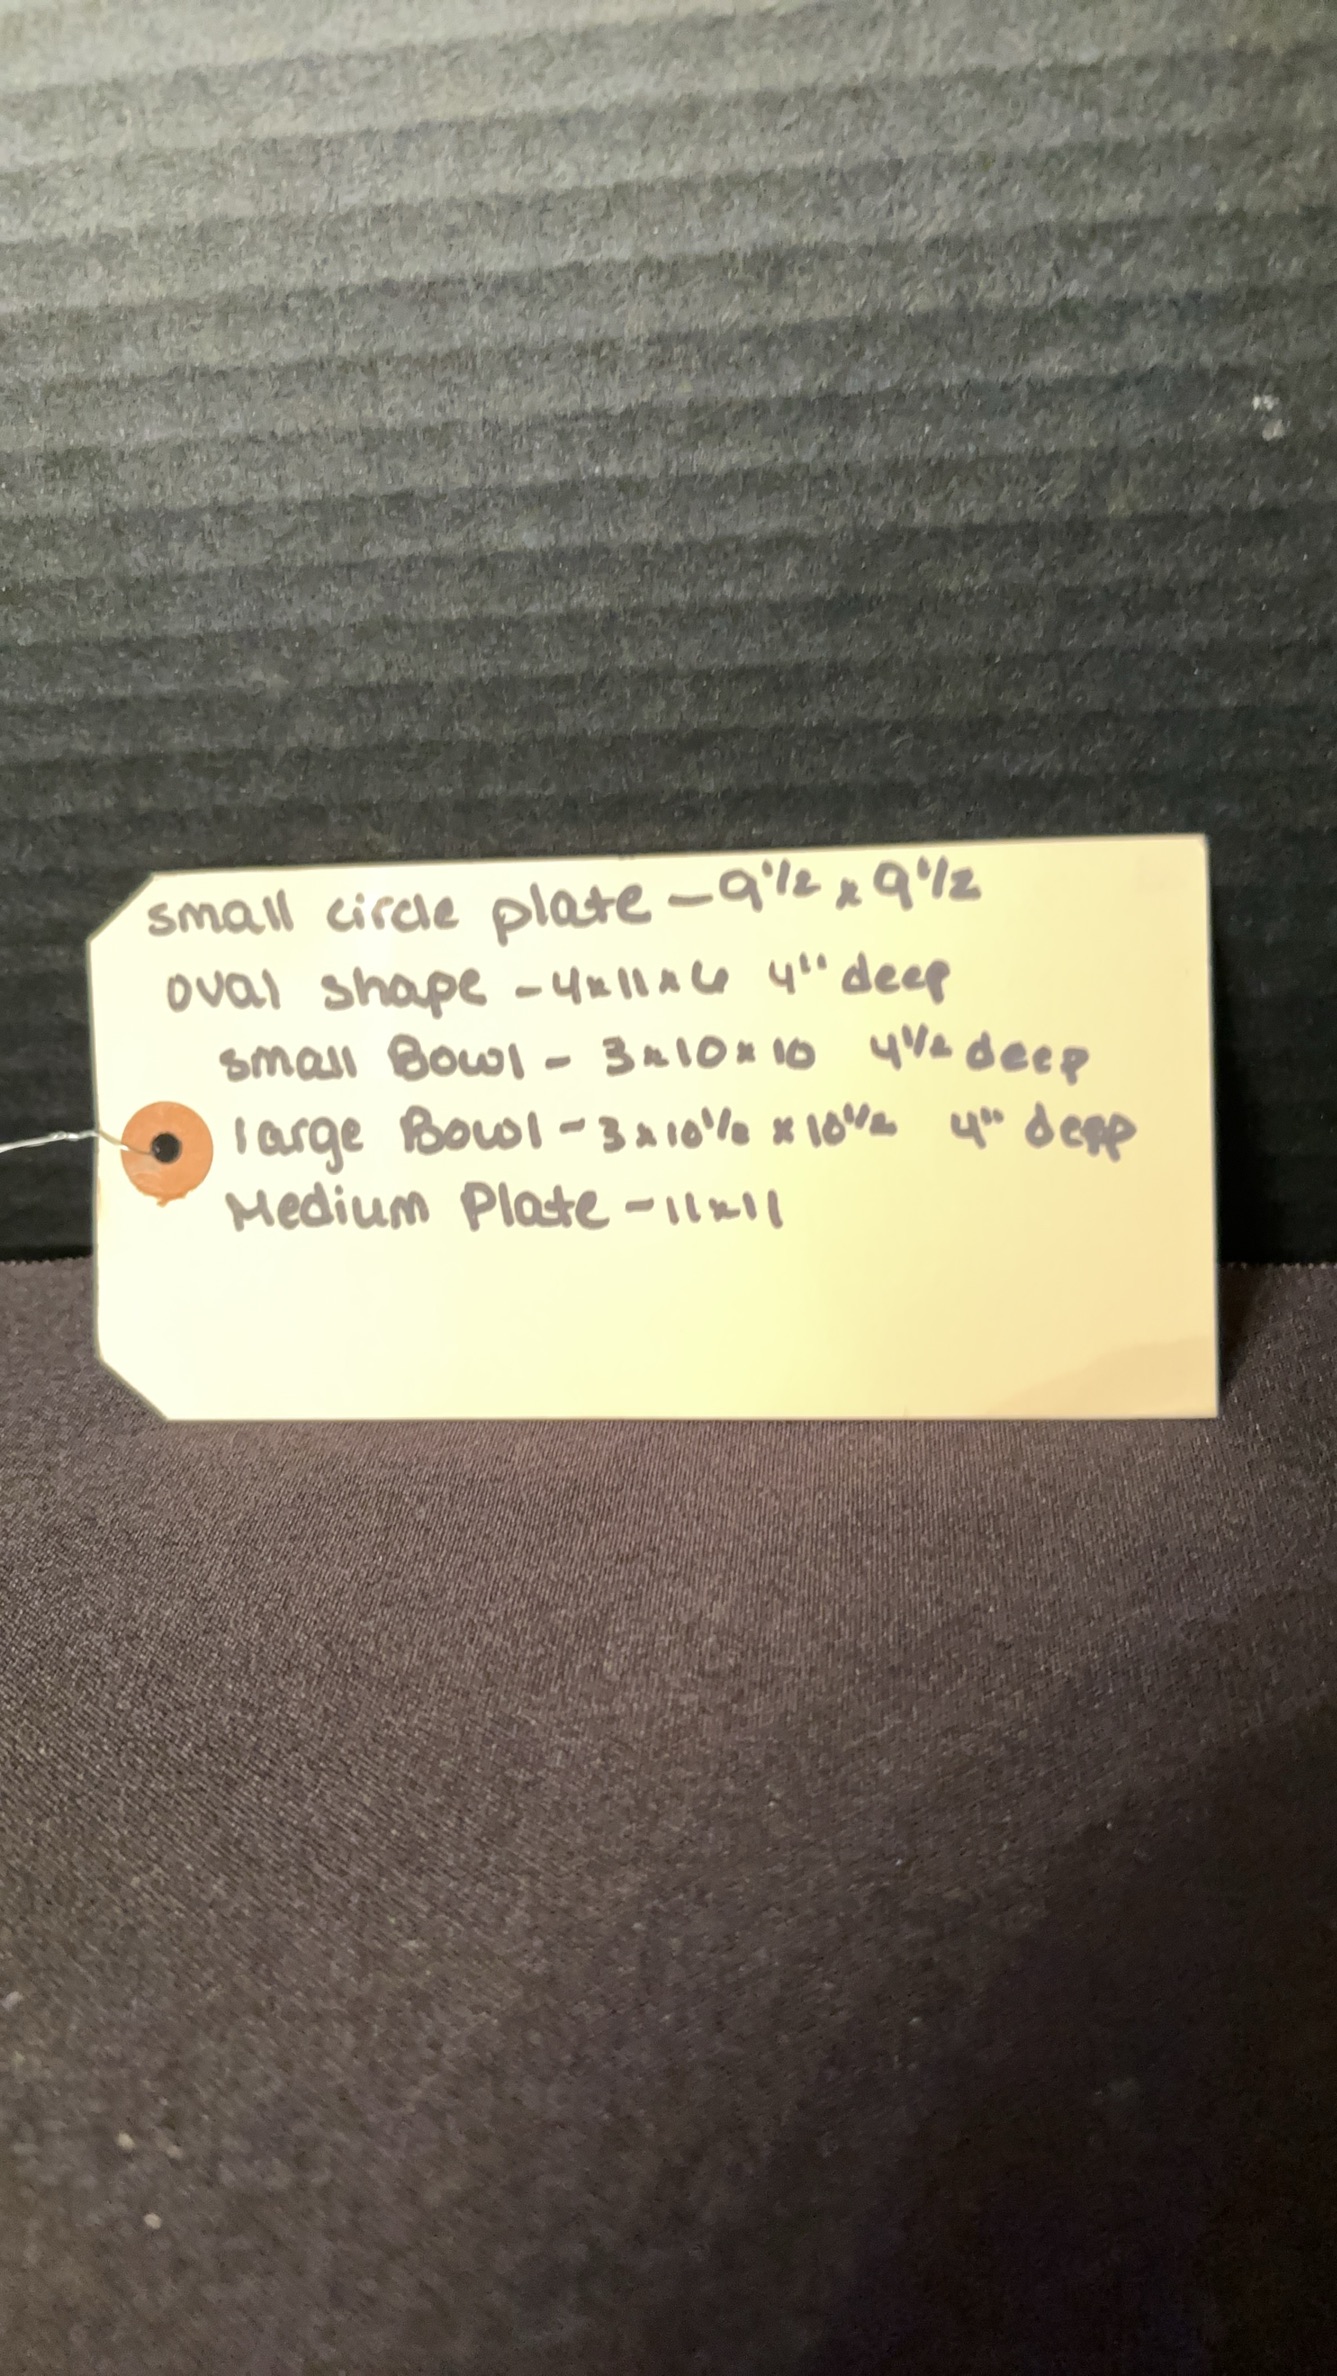 small circle plate - 9 1/2 x 9 1/2
oval shape - 4x11x6 4" deep
small Bowl - 3x10x10 4 1/2 deep
large Bowl - 3x10 1/2 x 10 1/2 4" deep
Medium Plate - 11x11